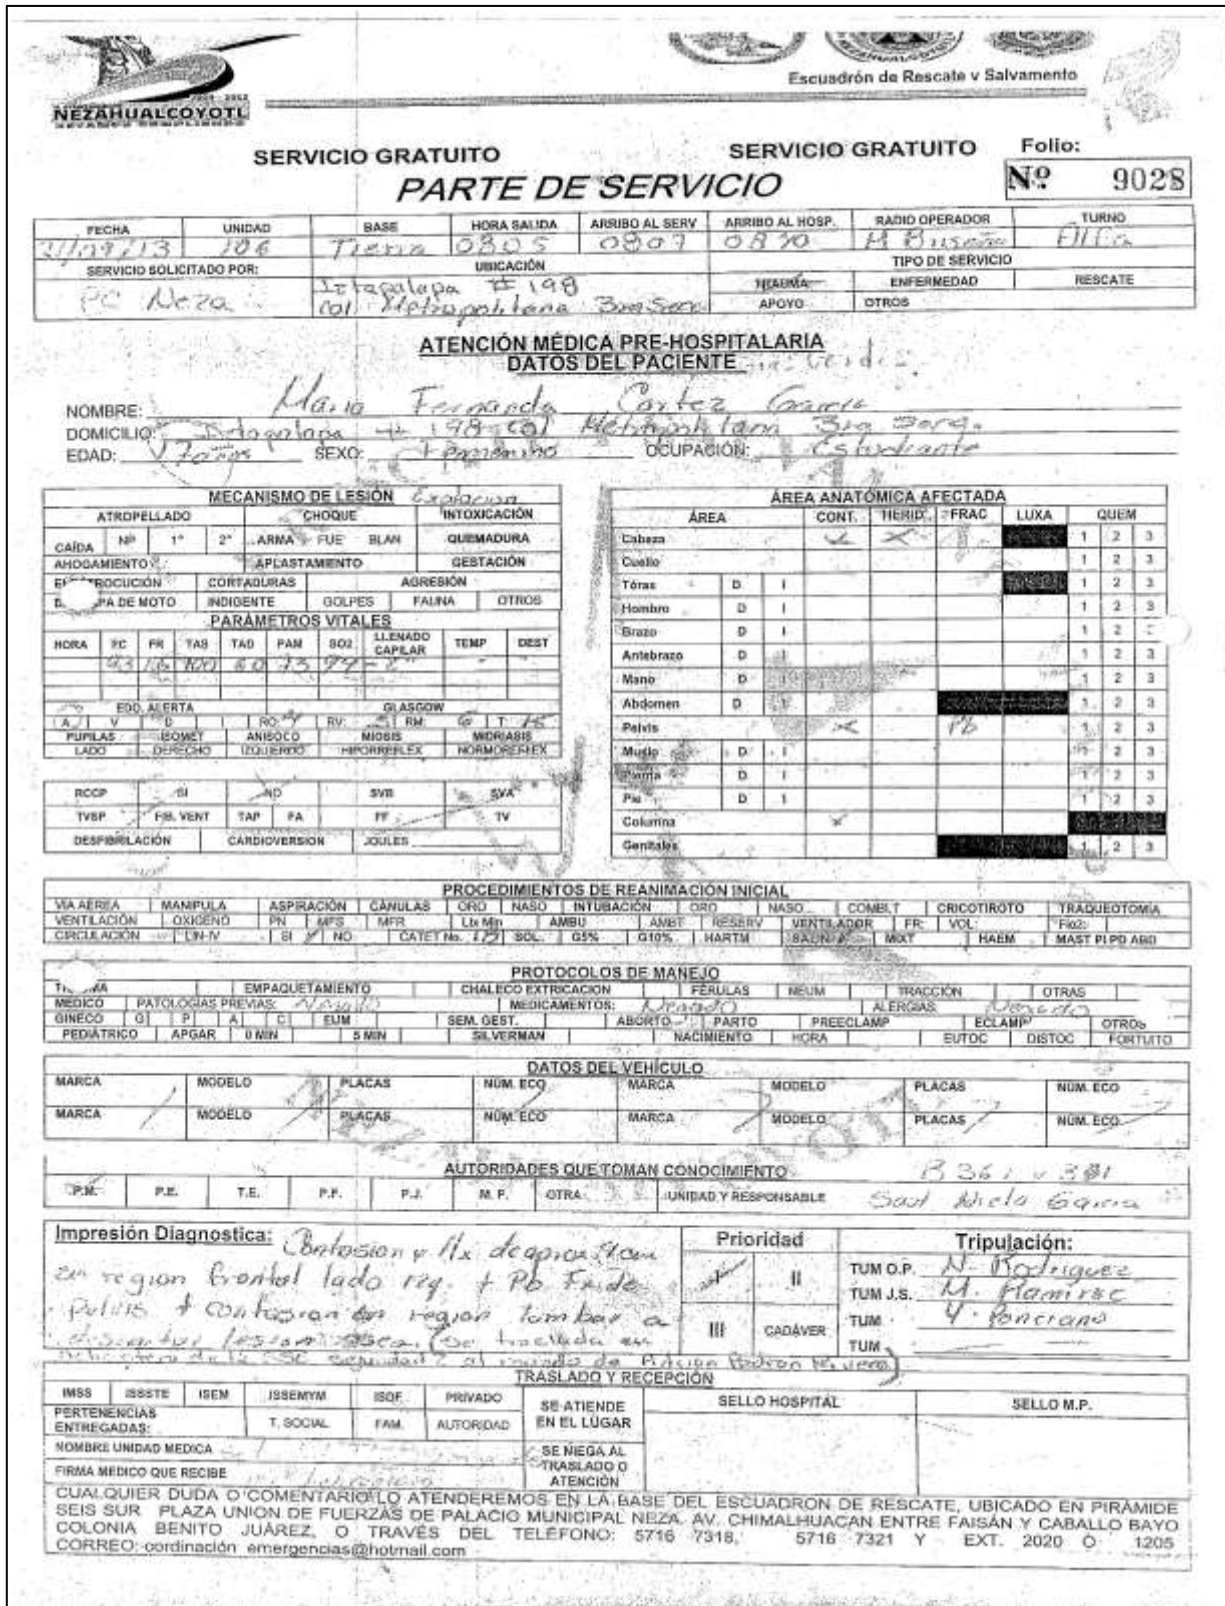 NEZAHUALCOYOTL
Escuadrón de Rescate y Salvamento
SERVICIO GRATUITO SERVICIO GRATUITO Folio:
PARTE DE SERVICIO Nº 9028
FECHA UNIDAD BASE HORA SALIDA ARRIBO AL SERV ARRIBO AL HOSP. RADIO OPERADOR TURNO
106 Tierra 0805 0807 0830
SERVICIO SOLICITADO POR: UBICACIÓN TIPO DE SERVICIO
PC Neza Iztapalapa # 198 TRAUMA ENFERMEDAD RESCATE
Col. Metropolitana 3ra Secc APOYO OTROS
ATENCIÓN MÉDICA PRE-HOSPITALARIA
DATOS DEL PACIENTE
NOMBRE: Maria Fernanda Cortez Garcia
DOMICILIO: # 198 Col Metropolitana 3ra
EDAD: 17 años SEXO: Femenino OCUPACIÓN: Estudiante
MECANISMO DE LESIÓN Explosion
ATROPELLADO CHOQUE INTOXICACIÓN
CAÍDA Nº 1° 2° ARMA FUE BLAN QUEMADURA
AHOGAMIENTO APLASTAMIENTO GESTACIÓN
CORTADURAS AGRESIÓN
PA DE MOTO INDIGENTE GOLPES FAUNA OTROS
PARÁMETROS VITALES
HORA FC FR TAS TAD PAM SO2 LLENADO CAPILAR TEMP DEST
93 16 100 60 73 94 2"
EDO. ALERTA GLASGOW
A V D I RO: 4 RV: 5 RM: 6 T: 15
PUPILAS ISOMET ANISOCO MIOSIS MIDRIASIS
LADO DERECHO IZQUIERDO HIPORREFLEX NORMOREFLEX
RCCP SI NO SVB SVA
TVSP FIB. VENT TAP FA FF TV
DESFIBRILACIÓN CARDIOVERSION JOULES
ÁREA ANATÓMICA AFECTADA
ÁREA CONT. HERID. FRAC LUXA QUEM
Cabeza X X 1 2 3
Cuello 1 2 3
Tórax D I 1 2 3
Hombro D I 1 2 3
Brazo D I 1 2
Antebrazo D I 1 2 3
Mano D I 1 2 3
Abdomen D I 1 2 3
Pelvis X Pb 1 2 3
Muslo D I 1 2 3
Pierna D I 1 2 3
Pie D I 1 2 3
Columna X
Genitales 1 2 3
PROCEDIMIENTOS DE REANIMACIÓN INICIAL
VIA AEREA MANIPULA ASPIRACIÓN CÁNULAS ORO NASO INTUBACIÓN ORO NASO COMBI.T CRICOTIROTO TRAQUEOTOMIA
VENTILACIÓN OXIGENO PN MFS MFR Ltx Min AMBU AMBT RESERV VENTILADOR FR: VOL: Fio2:
CIRCULACIÓN LIN-IV SI NO CATET No. SOL. G5% G10% HARTM SALIN MIXT HAEM MAST PI PD ABD
PROTOCOLOS DE MANEJO
EMPAQUETAMIENTO CHALECO EXTRICACION FÉRULAS NEUM TRACCIÓN OTRAS
MEDICO PATOLOGÍAS PREVIAS: Negado MEDICAMENTOS: Negado ALERGIAS: Negado
GINECO G P A C EUM SEM. GEST. ABORTO PARTO PREECLAMP ECLAMP OTROS
PEDIÁTRICO APGAR 0 MIN 5 MIN SILVERMAN NACIMIENTO HORA EUTOC DISTOC FORTUITO
DATOS DEL VEHÍCULO
MARCA MODELO PLACAS NÚM. ECO MARCA MODELO PLACAS NÚM. ECO
MARCA MODELO PLACAS NÚM. ECO MARCA MODELO PLACAS NÚM. ECO
AUTORIDADES QUE TOMAN CONOCIMIENTO
P.M. P.E. T.E. P.F. P.J. M. P. OTRA UNIDAD Y RESPONSABLE
Impresión Diagnostica: Contusion y Hx de aprox 4cm
en region frontal lado izq. + Pb Fx de
Pelvis + contusion en region lumbar a
descartar lesion osea. (se traslada en
Prioridad
I II
III CADÁVER
Tripulación:
TUM O.P. N. Rodriguez
TUM J.S. M. Ramirez
TUM Y. Ponciano
TUM
TRASLADO Y RECEPCIÓN
IMSS ISSSTE ISEM ISSEMYM ISDF PRIVADO SE ATIENDE EN EL LUGAR SELLO HOSPITAL SELLO M.P.
PERTENENCIAS ENTREGADAS: T. SOCIAL FAM. AUTORIDAD
NOMBRE UNIDAD MEDICA SE NIEGA AL TRASLADO O ATENCIÓN
FIRMA MEDICO QUE RECIBE
CUALQUIER DUDA O COMENTARIO LO ATENDEREMOS EN LA BASE DEL ESCUADRON DE RESCATE, UBICADO EN PIRÁMIDE
SEIS SUR PLAZA UNION DE FUERZAS DE PALACIO MUNICIPAL NEZA. AV. CHIMALHUACAN ENTRE FAISÁN Y CABALLO BAYO
COLONIA BENITO JUÁREZ, O TRAVÉS DEL TELÉFONO: 5716 7318, 5716 7321 Y EXT. 2020 O 1205
CORREO: cordinación emergencias@hotmail.com